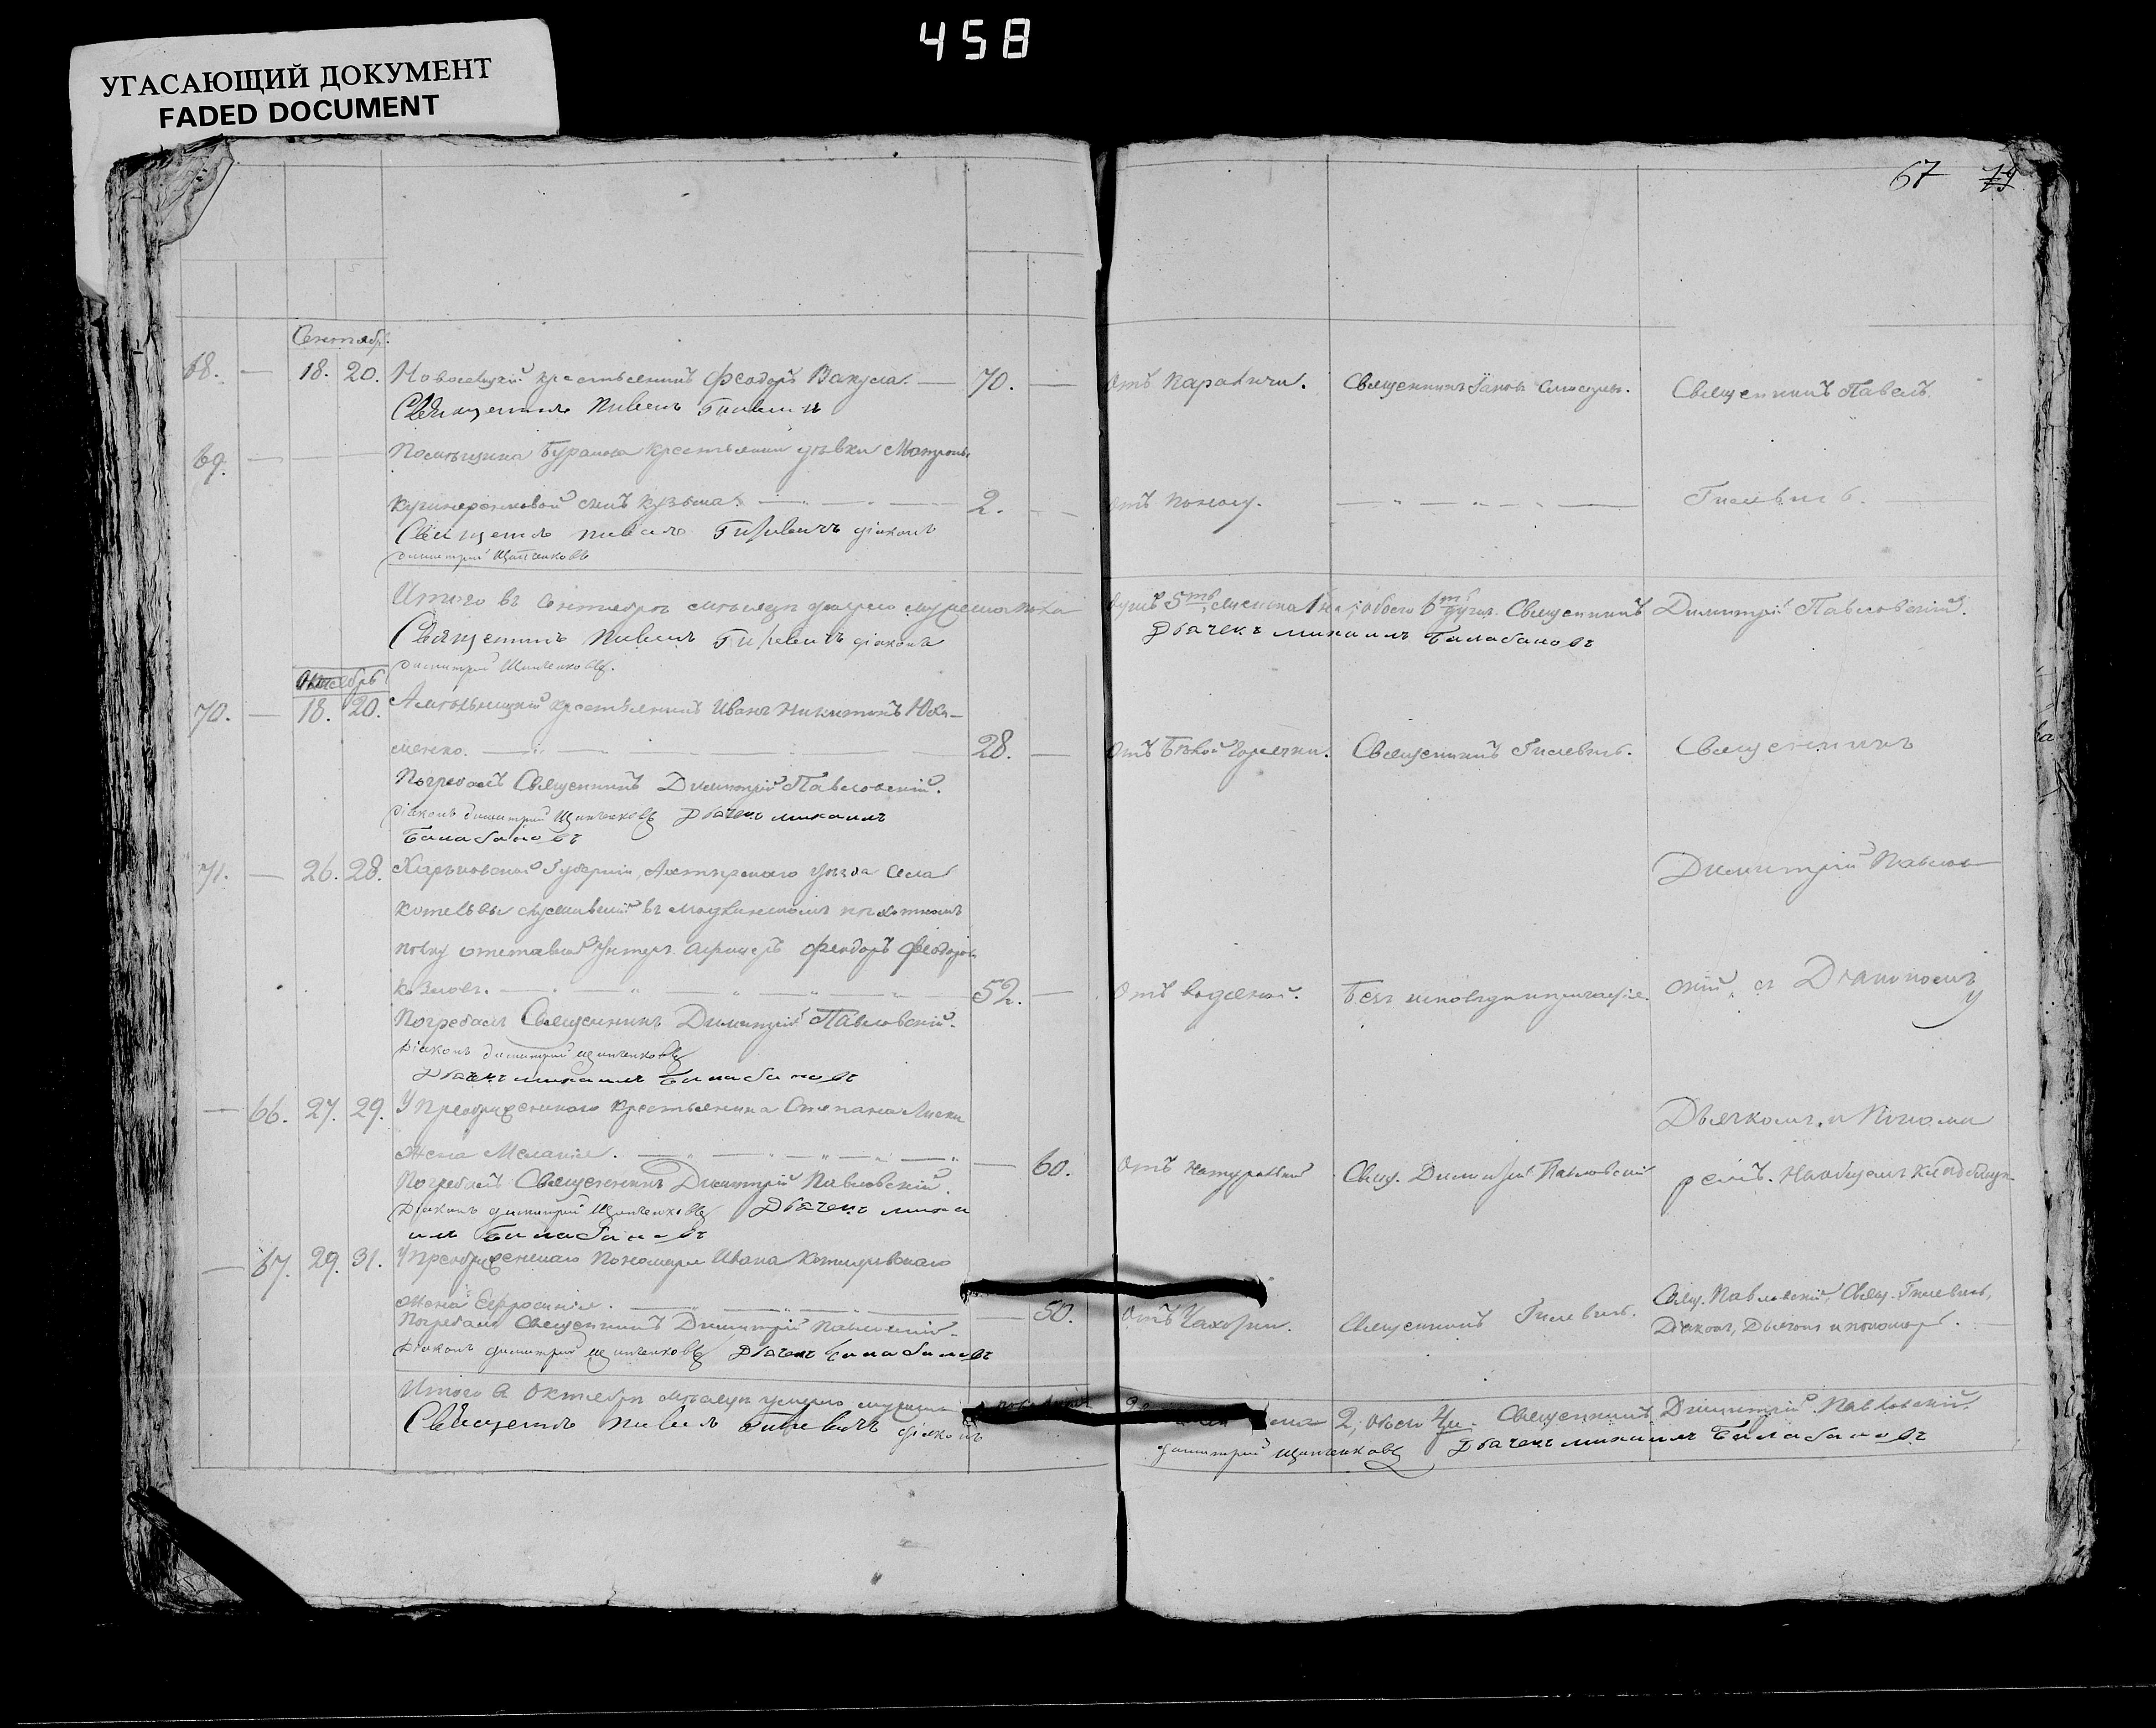 458
УГАСАЮЩИЙ ДОКУМЕНТ
FADED DOCUMENT
67 79
Сентябр.
68. — 18. 20. крестьянинъ Феодоръ Вакула. — 70. — Отъ параличи. Священникъ Іаковъ Священникъ Павелъ
Священникъ Павелъ Гилевичъ
69. — — — Помѣщика Буранова крестьянки дѣвки Матроны
сынъ Кузьма. — 2. — Отъ поносу. — Гилевичъ.
Священникъ Павелъ Гилевичъ діаконъ
Димитрий Щитченковъ
Итого въ Сентябрѣ мѣсяцѣ умерло мужеска пола душъ 5ть, женска 1на, обоего 6ть душъ. Священникъ Димитрій Павловскій.
Священникъ Павелъ Гилевичъ діаконъ Дьячекъ михаилъ Балабановъ
димитрий
Октябрь
70. — 18. 20. крестьянинъ Иванъ Никитинъ Юхи-
менко. — 28. — Отъ Бѣлой Горячки. Священникъ Гилевичъ. Священникъ
Погребалъ Священникъ Димитрій Павловскій.
Діаконъ димитрий Дьячекъ михаилъ
Балабановъ
71. — 26. 28. Харьковской Губерніи, Ахтырскаго уѣзда села Димитрій Павлов-
Котельвы служившій въ пѣхотномъ
полку отставной Унтеръ Офицеръ Феодоръ Феодоровъ
Козловъ. — 52. — Отъ водяной. Безъ исповѣди и причастія. скій, съ Діакономъ,
Погребалъ Священникъ Димитрій Павловскій.
Діаконъ димитрий
Дьячекъ михаилъ Балабановъ
— 66. 27. 29. У Преображенскаго крестьянина Степана Дьячкомъ, и Понома
жена Меланія. — 60. Отъ натуральной Свящ. Димитрій Павловскій ремъ. На общемъ кладбищѣ.
Погребалъ Священникъ Димитрій Павловскій.
Діаконъ димитрий Дьячекъ миха
илъ Балабановъ
— 67. 29. 31. У Преображенскаго Пономаря Ивана
жена Ефросинія. — 50. Отъ Чахотки. Священникъ Гилевичъ. Свящ. Павловскій, Свящ. Гилевичъ,
Погребалъ Священникъ Димитрій Павловскій. Діаконъ, Дьячокъ и пономарь.
Діаконъ димитрий Дьячекъ Балабановъ
Итого в Октябрѣ мѣсяцѣ умерло мужеска 2, обоего 4и. Священникъ Димитрій Павловскій.
Священникъ Павелъ Гилевичъ діаконъ димитрий Дьячекъ михаилъ Балабановъ